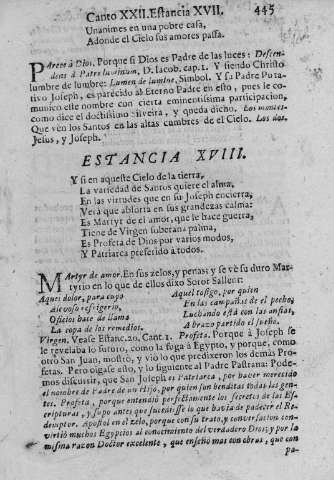 Canto XXII. Estancia XVII. 445
Unanimes en una pobre casa,
Adonde el Cielo sus amores passa.
PArece à Dios. Porque si Dios es Padre de las luces: Descen-
dens à Patre luminum, D. Iacob. cap. 1. Y siendo Christo
lumbre de lumbre: Lumen de lumine, Simbol. Y su Padre Puta-
tivo Joseph, es parecido al Eterno Padre en esto, pues le co-
munico este nombre con cierta eminentissima participacion,
como dice el doctissimo Silveira, y queda dicho. Los montes.
Que ven los Santos en las altas cumbres de el Cielo. Los dos.
Jesus, y Joseph.
ESTANCIA XVIII.
Y si en aqueste Cielo de la tierra,
La variedad de Santos quiere el alma,
En las virtudes que en su Joseph encierra,
Verà que absorta en sus grandezas calma:
Es Martyr de el amor, que le hace guerra,
Tiene de Virgen soberana palma,
Es Profeta de Dios por varios modos,
Y Patriarca preferido à todos.
MArtyr de amor. En sus zelos, y penas; y se vè su duro Mar-
tyrio en lo que de ellos dixo Soror Salleut:
Aquel dolor, para cuyo
Alevoso refrigerio,
Oficios hace de llama
La copa de los remedios.
Aquel tosigo, por quien
En las campañas de el pecho,
Luchando està con las ansias,
A brazo partido el sueño.
Virgen. Vease Estanc. 20. Cant. 1. Profeta. Porque à Joseph se
le revelaba lo futuro, como la fuga à Egypto, y porque, como
otro San Juan, mostrò, y viò lo que predixeron los demàs Pro-
fetas. Pero oigase esto, y lo siguiente al Padre Pastrana: Pode-
mos discurrir, que San Joseph es Patriarca, por haver merecido
el nombre de Padre de un Hijo, por quien son benditas todas las gen-
tes. Profeta, porque entendiò perfectamente los secretos de las Es-
cripturas, y supo antes que sucediesse lo que havia de padecer el Re-
demptor. Apostol en el zelo, porque con su trato, y conversacion con-
virtiò muchos Egypcios al conocimiento del verdadero Dios; y por la
misma razon Doctor excelente, que enseñò mas con obras, que con
pa-